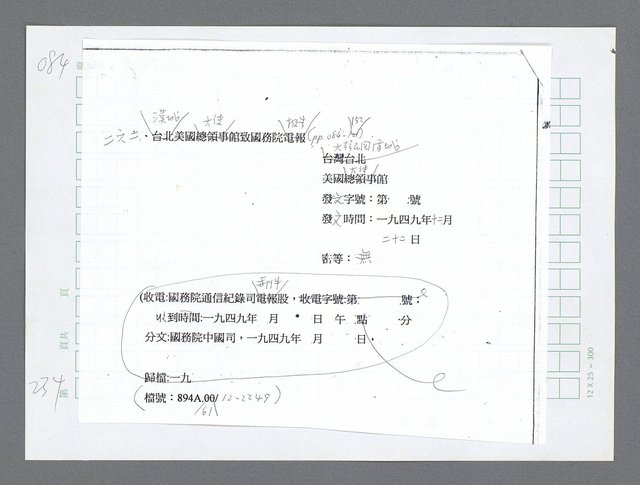 084
漢城 大使 報告 132
二六二.台北美國總領事館致國務院電報(pp.084-
大韓民國漢城
台灣台北
大使
美國總領事館
發文字號:第 號
發文時間:一九四九年十二月
二十二日
密等:無
郵件
(收電:國務院通信紀錄司電報股,收電字號:第 號;
收到時間:一九四九年 月 日 午 點 分
分文:國務院中國司,一九四九年 月 日,
歸檔:一九
(檔號:894A.00/12-2249)
/61
頁
頁共
第
234
12 X 25 = 300